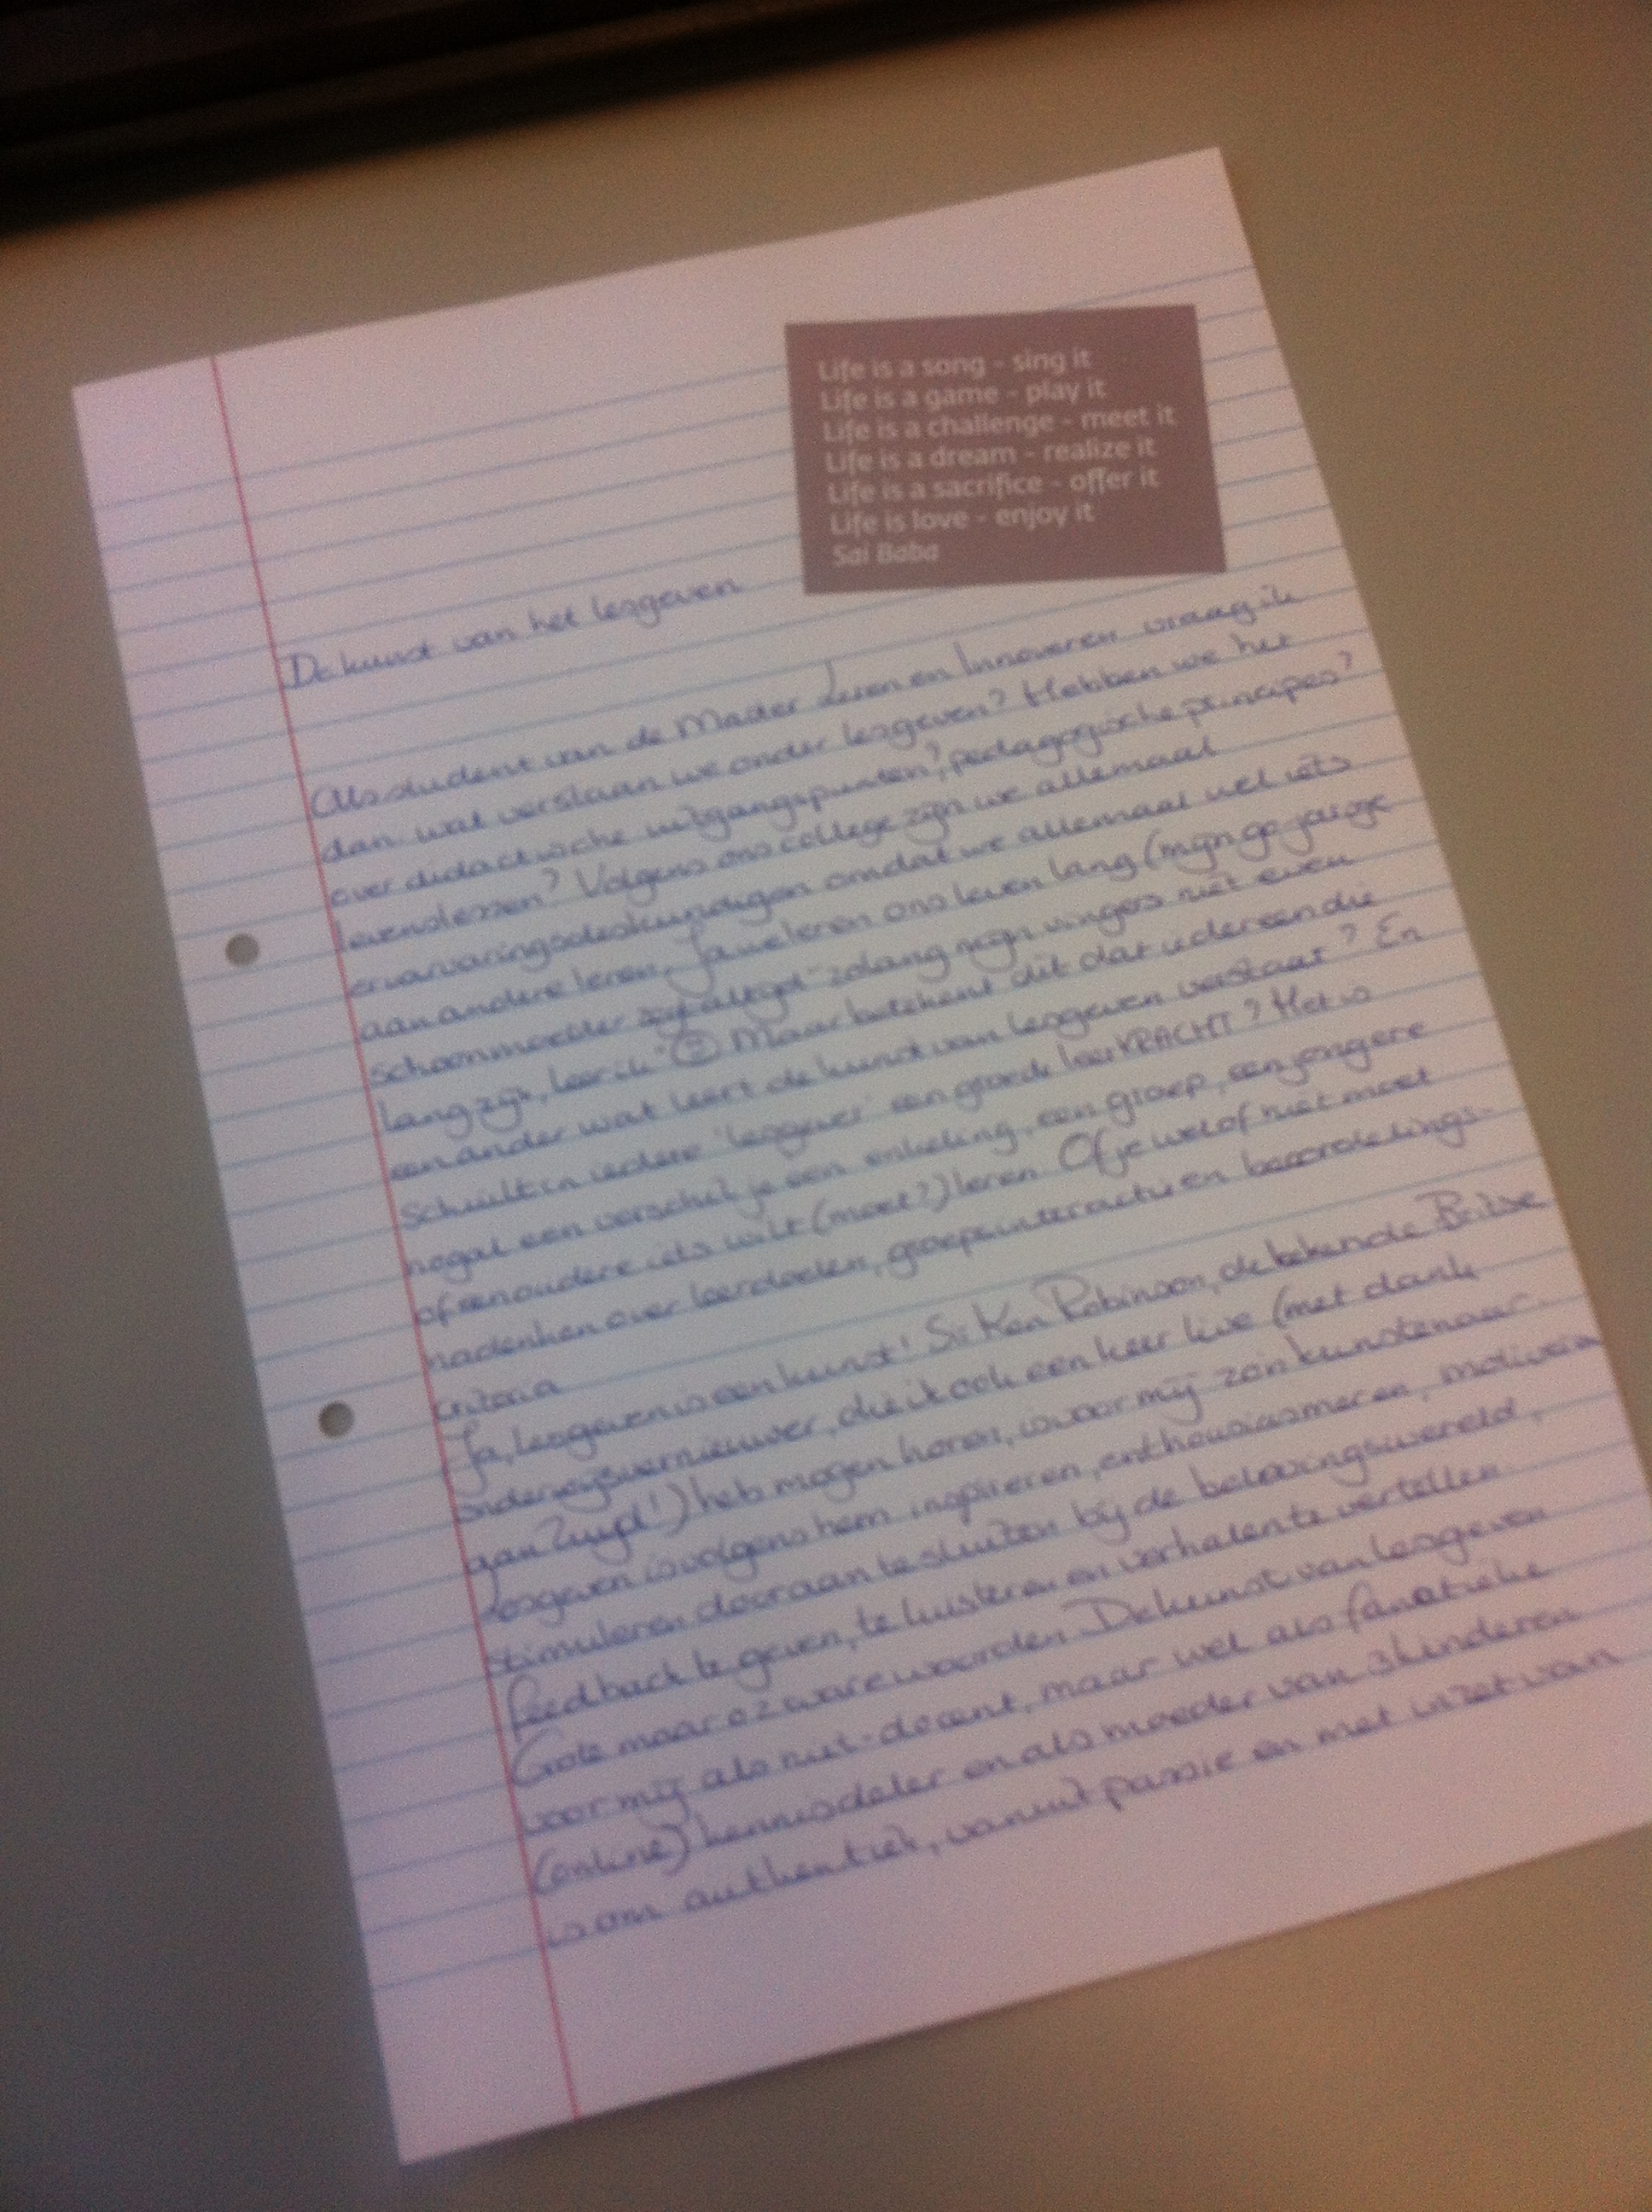 Life is a song - sing it
Life is a game - play it
Life is a challenge - meet it
Life is a dream - realize it
Life is a sacrifice - offer it
Life is love - enjoy it
Sai Baba
De kunst van het lesgeven
Als student van de Master Leren en Innoveren vraag ik
dan wat verstaan we onder lesgeven? Hebben we het
over didactische uitgangspunten?, pedagogische principes?
levenslessen? Volgens ons college zijn we allemaal
ervarvaringsdeskundigen omdat we allemaal wel iets
aan andere leren. Ja we leren ons leven lang (mijn 90 jarige
schoonmoeder zegt altijd "zolang mijn vingers niet even
lang zijn, leer ik" ☺ Maar betekent dit dat iedereen die
een ander wat leert de kunst van lesgeven verstaat? En
schuilt in iedere 'lesgever' een goede leerKRACHT? Het is
nogal een verschil je een enkeling, een groep, een jongere
of een oudere iets wilt (moet?) leren. Of je wel of niet moet
nadenken over leerdoelen, groepsinteractie en beoordelings-
criteria
Ja, lesgeven is een kunst! Sir Ken Robinson, de bekende Britse
onderwijsvernieuwer, die ik ook een keer live (met dank
aan Zuyd!) heb mogen horen, is voor mij zo'n kunstenaar.
Lesgeven is volgens hem inspireren, enthousiasmeren, motiveren
stimuleren door aan te sluiten bij de belevingswereld,
feedback te geven, te luisteren en verhalen te vertellen.
Grote maar o zware woorden. De kunst van lesgeven
voor mij als niet-docent, maar wel als fanatieke
(online) kennisdeler en als moeder van 3 kinderen
is om authentiek, vanuit passie en met inzet van